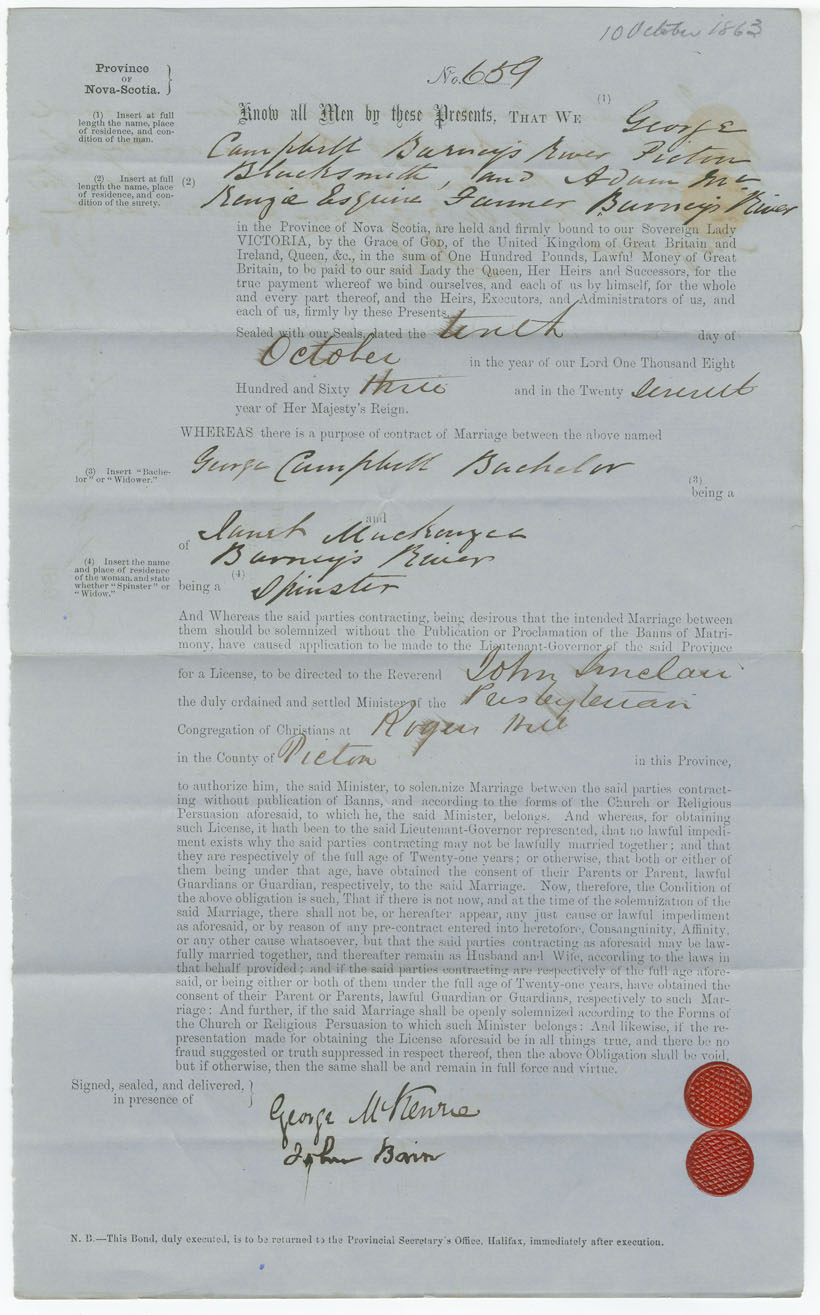 10 October 1863
Province
OF
Nova-Scotia.
No. 659
(1) Insert at full
length the name, place
of residence, and con-
dition of the man.
Know all Men by these Presents, THAT WE (1) George
Campbell Barney's River Pictou
(2) Insert at full
length the name, place
of residence, and con-
dition of the surety.
(2) Blacksmith, and Adam Mc
Kenzie Esquire Farmer Barney's River
in the Province of Nova Scotia, are held and firmly bound to our Sovereign Lady
VICTORIA, by the Grace of GOD, of the United Kingdom of Great Britain and
Ireland, Queen, &c., in the sum of One Hundred Pounds, Lawful Money of Great
Britain, to be paid to our said Lady the Queen, Her Heirs and Successors, for the
true payment whereof we bind ourselves, and each of us by himself, for the whole
and every part thereof, and the Heirs, Executors, and Administrators of us, and
each of us, firmly by these Presents.
Sealed with our Seals, dated the tenth day of
October in the year of our Lord One Thousand Eight
Hundred and Sixty three and in the Twenty
year of Her Majesty's Reign.
WHEREAS there is a purpose of contract of Marriage between the above named
(3) Insert "Bache-
lor" or "Widower."
George Campbell Bachelor
(3)
being a
and
of Janet Mackenzie
Barney's River
(4) Insert the name
and place of residence
of the woman, and state
whether "Spinster" or
"Widow."
being a (4) Spinster
And Whereas the said parties contracting, being desirous that the intended Marriage between
them should be solemnized without the Publication or Proclamation of the Banns of Matri-
mony, have caused application to be made to the Lieutenant-Governor of the said Province
for a License, to be directed to the Reverend John Sinclair
the duly ordained and settled Minister of the Presbyterian
Congregation of Christians at Rogers Hill
in the County of Pictou in this Province,
to authorize him, the said Minister, to solemnize Marriage between the said parties contract-
ing without publication of Banns, and according to the forms of the Church or Religious
Persuasion aforesaid, to which he, the said Minister, belongs. And whereas, for obtaining
such License, it hath been to the said Lieutenant-Governor represented, that no lawful impedi-
ment exists why the said parties contracting may not be lawfully married together; and that
they are respectively of the full age of Twenty-one years; or otherwise, that both or either of
them being under that age, have obtained the consent of their Parents or Parent, lawful
Guardians or Guardian, respectively, to the said Marriage. Now, therefore, the Condition of
the above obligation is such, That if there is not now, and at the time of the solemnization of the
said Marriage, there shall not be, or hereafter appear, any just cause or lawful impediment
as aforesaid, or by reason of any pre-contract entered into heretofore, Consanguinity, Affinity,
or any other cause whatsoever, but that the said parties contracting as aforesaid may be law-
fully married together, and thereafter remain as Husband and Wife, according to the laws in
that behalf provided; and if the said parties contracting are respectively of the full age afore-
said, or being either or both of them under the full age of Twenty-one years, have obtained the
consent of their Parent or Parents, lawful Guardian or Guardians, respectively to such Mar-
riage: And further, if the said Marriage shall be openly solemnized according to the Forms of
the Church or Religious Persuasion to which such Minister belongs: And likewise, if the re-
presentation made for obtaining the License aforesaid be in all things true, and there be no
fraud suggested or truth suppressed in respect thereof, then the above Obligation shall be void,
but if otherwise, then the same shall be and remain in full force and virtue.
Signed, sealed, and delivered,
in presence of
George McKenzie
John Bain
N. B.—This Bond, duly executed, is to be returned to the Provincial Secretary's Office, Halifax, immediately after execution.